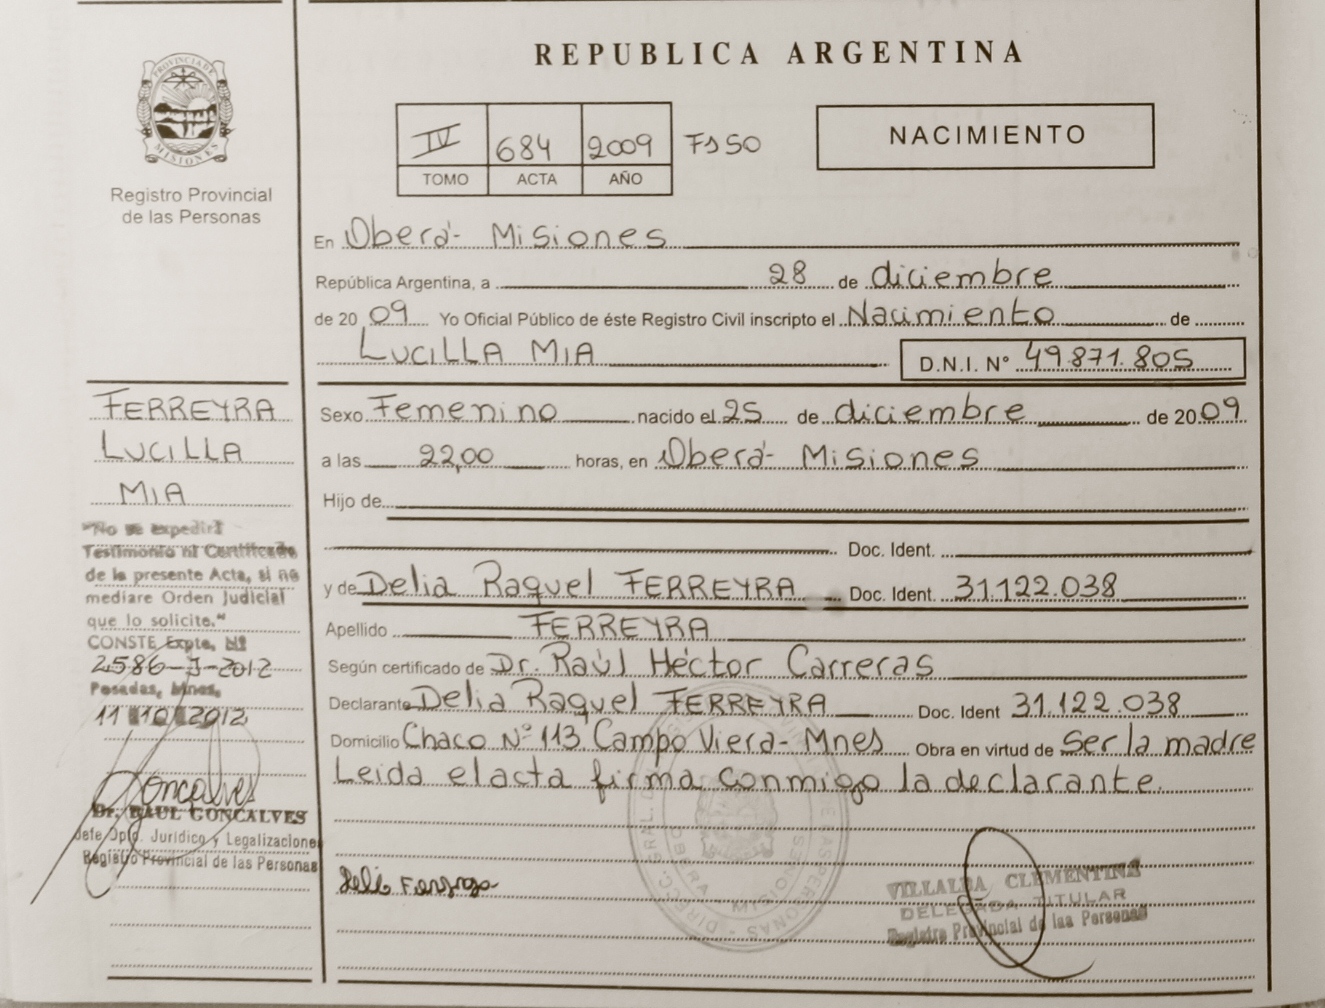 REPUBLICA ARGENTINA
PROVINCIA DE
MISIONES
Registro Provincial
de las Personas
IV 684 2009 Fs 50
TOMO ACTA AÑO
NACIMIENTO
En Oberá- Misiones
República Argentina, a 28 de diciembre
de 20 09 Yo Oficial Público de éste Registro Civil inscripto el Nacimiento de
LUCILLA MIA D.N.I. N° 49.871.805
FERREYRA
LUCILLA
MIA
Sexo Femenino nacido el 25 de diciembre de 2009
a las 22,00 horas, en Oberá- Misiones
Hijo de
Doc. Ident.
y de Delia Raquel FERREYRA Doc. Ident. 31.122.038
Apellido FERREYRA
Según certificado de Dr. Raúl Héctor Carreras
Declarante Delia Raquel FERREYRA Doc. Ident 31.122.038
Domicilio Chaco N° 113 Campo Viera- Mnes Obra en virtud de ser la madre
Leida el acta firma conmigo la declarante.
"No se expedirá
Testimonio ni Certificado
de la presente Acta, si no
mediare Orden Judicial
que lo solicite."
CONSTE Expte, Nº
2586-J-2012
Posadas, Mnes,
11 10 2012
Goncalves
Dr. RAUL GONCALVES
Jefe Dpto. Jurídico y Legalizaciones
Registro Provincial de las Personas
VILLALBA CLEMENTINA
DELEGADA TITULAR
Registro Provincial de las Personas